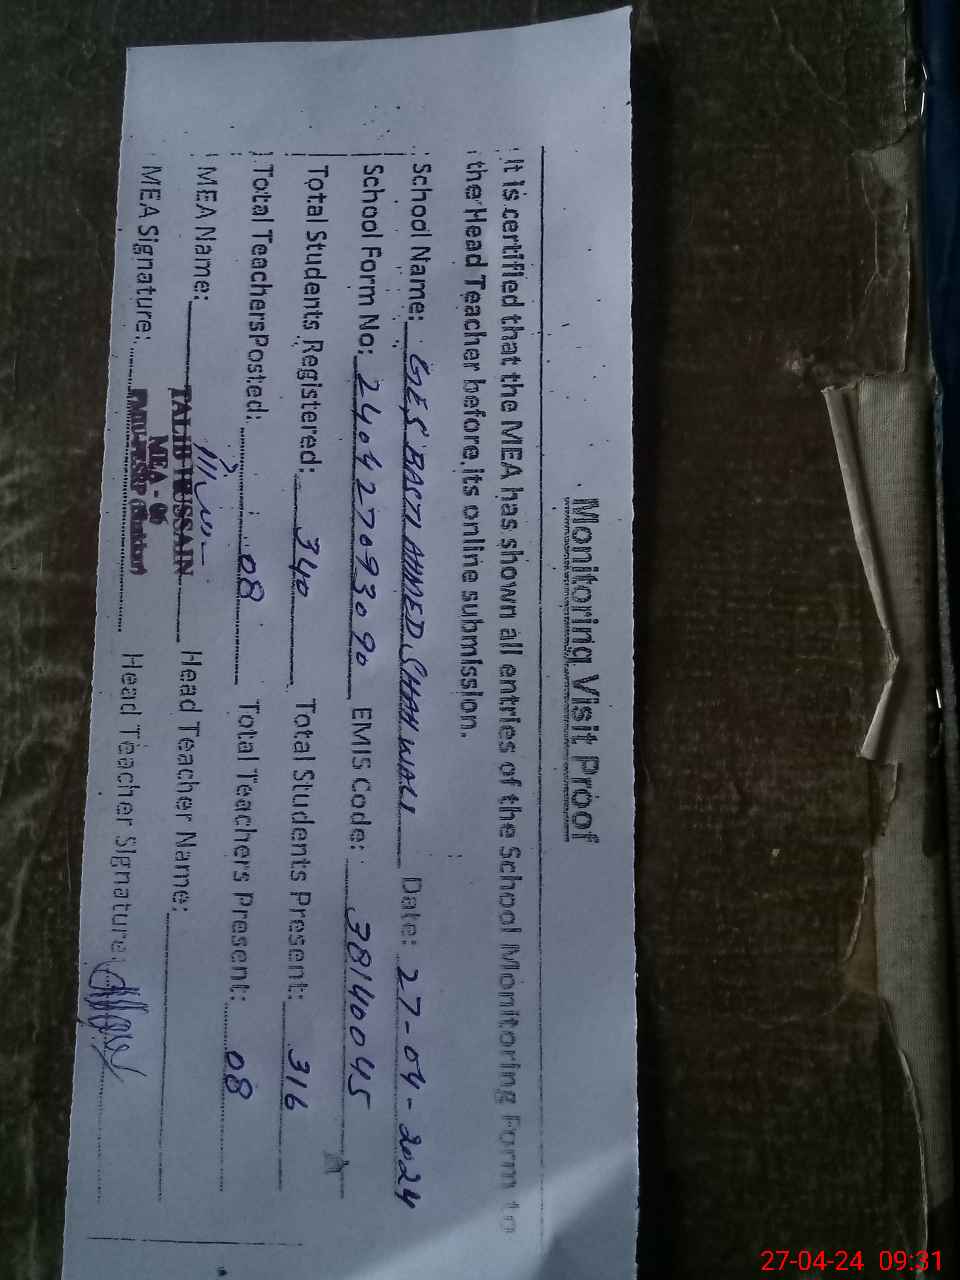 Monitoring Visit Proof
It is certified that the MEA has shown all entries of the School Monitoring Form to
the Head Teacher before its online submission.
School Name: GES BASTI AHMED SHAH WALI Date: 27-04-2024
School Form No: 240427093090 EMIS Code: 38140045
Total Students Registered: 340 Total Students Present: 316
Total Teachers Posted: 08 Total Teachers Present: 08
MEA Name: TALIB HUSSAIN Head Teacher Name:
MEA - 06
MEA Signature: Head Teacher Signature:
27-04-24 09:31